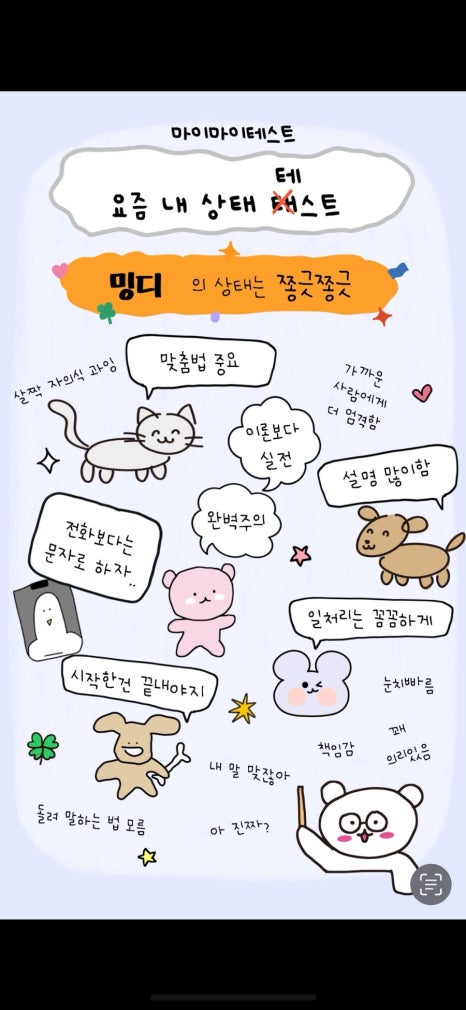 마이마이테스트
테
요즘 내 상태 태스트
밍디 의 상태는 쫑긋쫑긋
살짝 자의식 과잉
맞춤법 중요
가까운
사람에게
더 엄격함
이론보다
실전
설명 많이함
완벽주의
전화보다는
문자로 하자..
일처리는 꼼꼼하게
시작한건 끝내야지
눈치빠름
책임감
꽤
의리있음
내 말 맞잖아
돌려 말하는 법 모름
아 진짜?